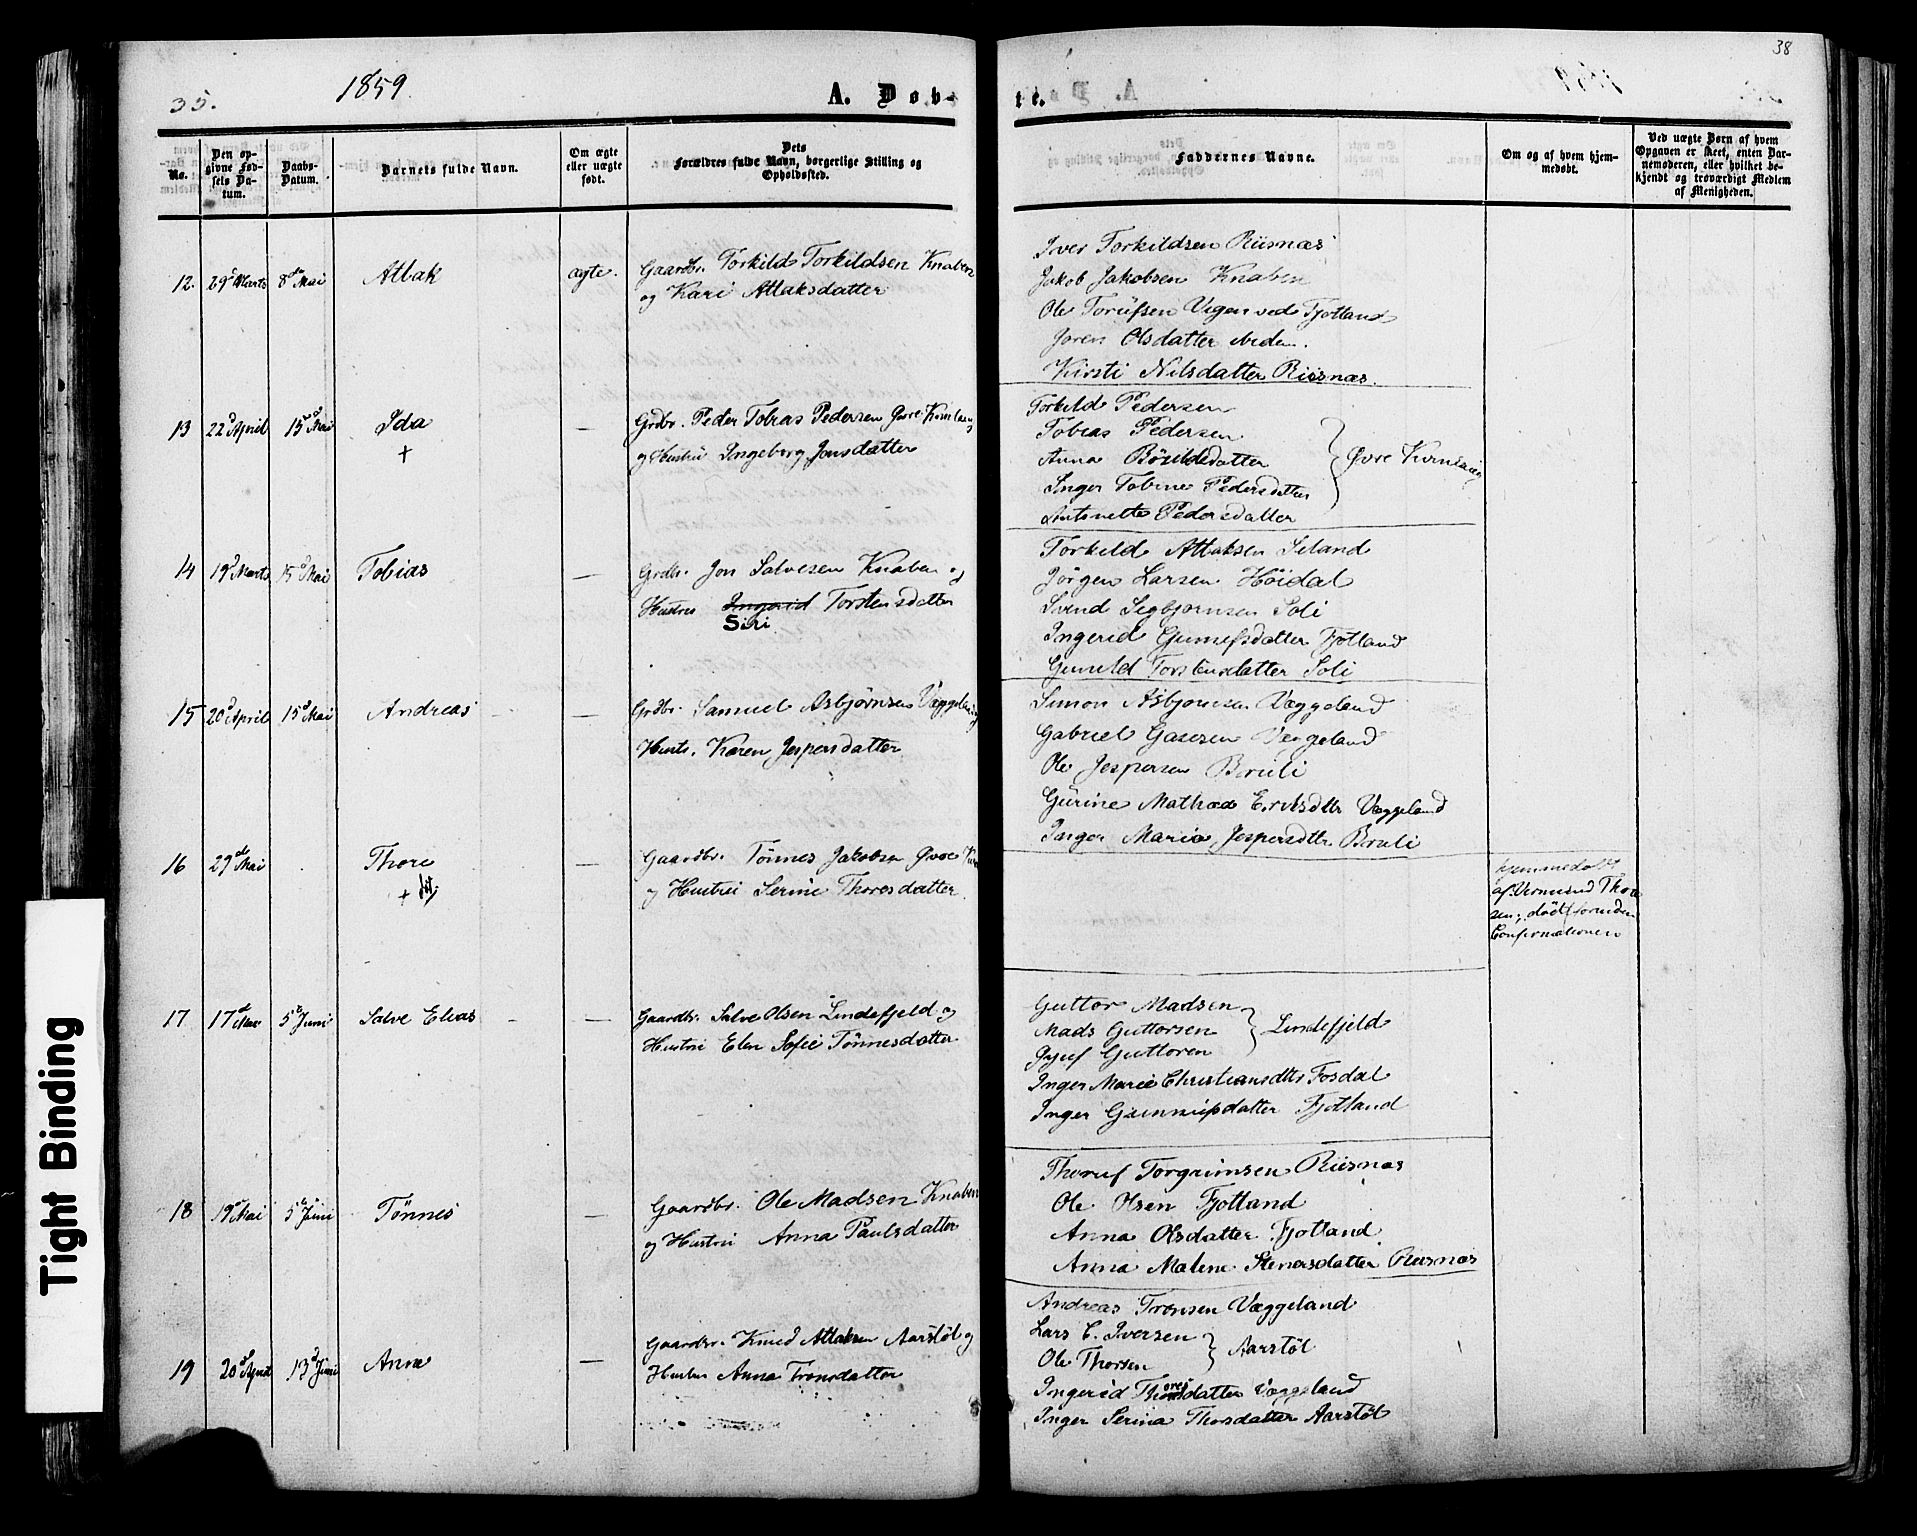 35.
1859.
A. Døb-
te.
38
No.
Den opgivne Fødsels Datum.
Daabs-Datum.
Barnets fulde Navn.
Om ægte eller uægte født.
Dets Forældres fulde Navn, borgerlige Stilling og Opholdssted.
Faddernes Navne.
Om og af hvem hjemmedøbt.
Ved uægte Børn af hvem Opgaven er skeet, enten Barnemoderen, eller hvilket bekjendt og troværdigt Medlem af Menigheden.
12. 29d Marts 8de Mai Atlak ægte. Gaardbr. Torkild Torkildsen Knaben
og Kari Atlaksdatter
Iver Torkildsen Riisnæs
Jakob Jakobsen Knaben
Ole ved Fjotland
Joren Olsdatter ibiden.
Kirsti Nilsdatter Risnæs.
13 22d April 15d Mai Ida — Grdbr. Peder Tobias Pedersen Øvre
+
og Hustru Ingeborg Jonsdatter
Torkild Pedersen
Tobias Pedersen
Anna
Inger Tobine Pedersdatter
Antonette Pedersdatter
Øvre
14 19d Marts 15d Mai Tobias — Grdbr. Jon Salvesen Knaben og
Hustru Ingerid Torstensdatter
Siri
Torkild Atlaksen Seland
Jørgen Larsen Höidal
Svend Sigbjørnsen Soli
Ingerid Fjotland
Gunild Torstensdatter Soli
15 20d April 15d Mai Andreas — Grdbr. Samuel Asbjørnsen Væggeland og
Hustr. Karen Jespersdatter
Simon Asbjørnsen Væggeland
Gabriel Væggeland
Ole Jespersen Bruli
Gurine Væggeland
Inger Maria Jespersdtr Bruli
16 29d Mai Thore — Gaardbr. Tønnes Jakobsen Øvre
+
og Hustru Serine Thoresdatter
hjemmedøbt
af Vermund Thore
sen; død forinden
Confirmationen
17 17d Mai 5te Juni Salve Elias — Gaardbr. Salve Olsen Lindefjeld og
Hustru Elen Sofie Tønnesdatter
Guttor Madsen
Mads Guttorsen
Guttorsen
Lindefjeld
Inger Marie Christiansdtr Fosdal
Inger Fjotland
18 19d Mai 5te Juni Tønnes — Gaardbr. Ole Madsen Knaben
og Hustru Anna Paulsdatter
Torgrimsen Risnæs
Ole Olsen Fjotland
Anna Olsdatter Fjotland
Anna Malene Stenersdatter Risnæs
19 20d April 13d Juni Anne — Gaardbr. Knud Atlaksen Aarstøl og
Hustru Anna Tronsdatter
Andreas Tronsen Væggeland
Lars C. Iversen
Ole Thorsen
Aarstøl
Ingerid Thoresdatter Væggeland
Inger Serina Thorsdatter Aarstøl
Tight Binding